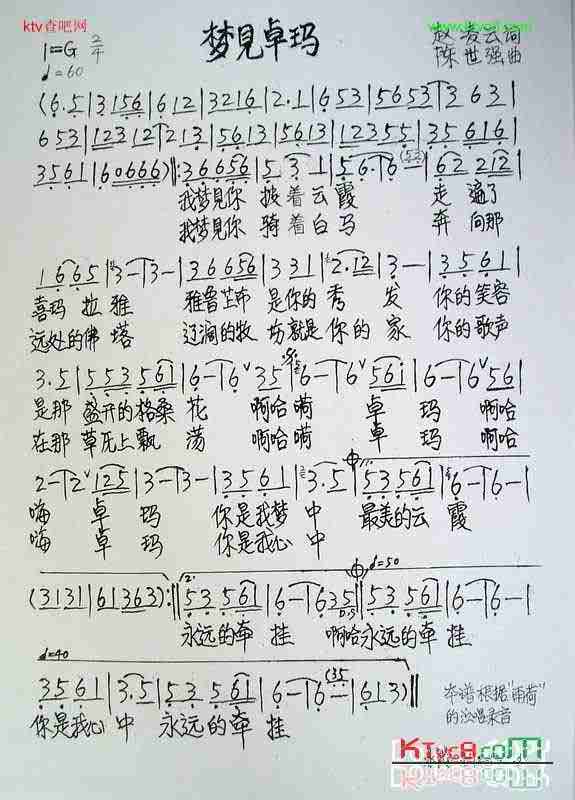 ktv查吧网
梦見卓玛
1=G 2/4
♩=60
赵凌云词
陈世强曲
(6.5|3156|612|3216|2.1|653|5653|3 63|
653|12312|213|5613|5613|12355|35616|
3561|60666)‖:36656|5 3 1|56.6|62 212|
我梦見你 披着云霞 走遍了
我梦見你 骑着白马 奔向那
1665|3-|3-|36656|331|2.12|3-|3561|
喜玛拉雅 雅鲁芷布 是你的秀发 你的笑容
远处的佛塔 辽阔的牧坊就是你的家 你的歌声
3.5|553561|6-|6 35|6-|6 561|6-|6 56|
是那盛开的格桑花 啊哈嗬 卓玛 啊哈
在那草原上飘荡 啊哈嗬 卓玛 啊哈
2-|2 125|3-|3-|3561|3.5|53561|6-|6-|
嗨 卓玛 你是我梦中 最美的云霞
嗨 卓玛 你是我心中
♩=50
(3131|61363):‖53 561|6-|635‖53 561|6-|6-|
D.S
永远的牵挂 啊哈永远的牵挂
♩=40
3561|3.5|53 561|6-|6-(35|613)‖
你是我心中 永远的牵挂
本谱根据"雨荷"
的演唱录音
KTVC8.COM